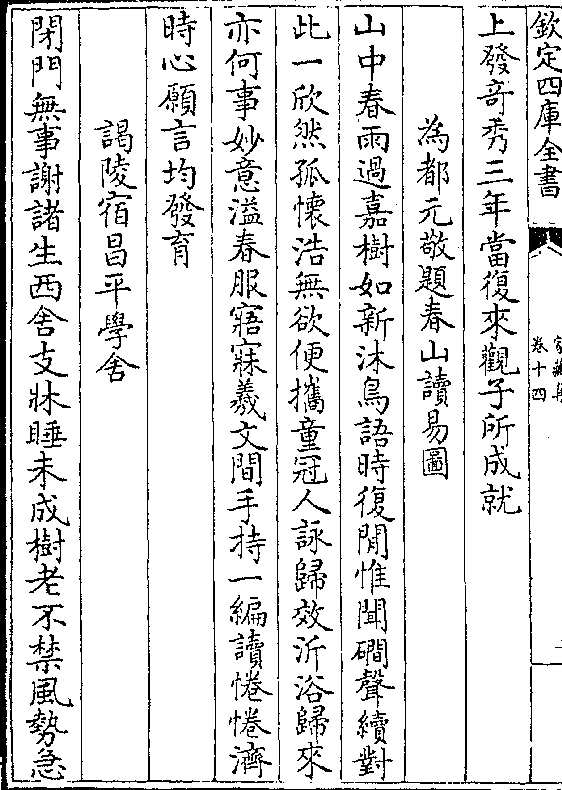 欽定四庫全書
卷十四
上發奇秀三年當復來觀子所成就
為都元敬題春山讀易圖
山中春雨過嘉樹如新沐鳥語時復閒惟聞磵聲續對
此一欣然孤懷浩無欲便攜童冠人詠歸效沂浴歸來
亦何事妙意溢春服寤寐羲文間手持一編讀惓惓濟
時心願言均發育
謁陵宿昌平學舍
閉門無事謝諸生西舍支牀睡未成樹老不禁風勢急